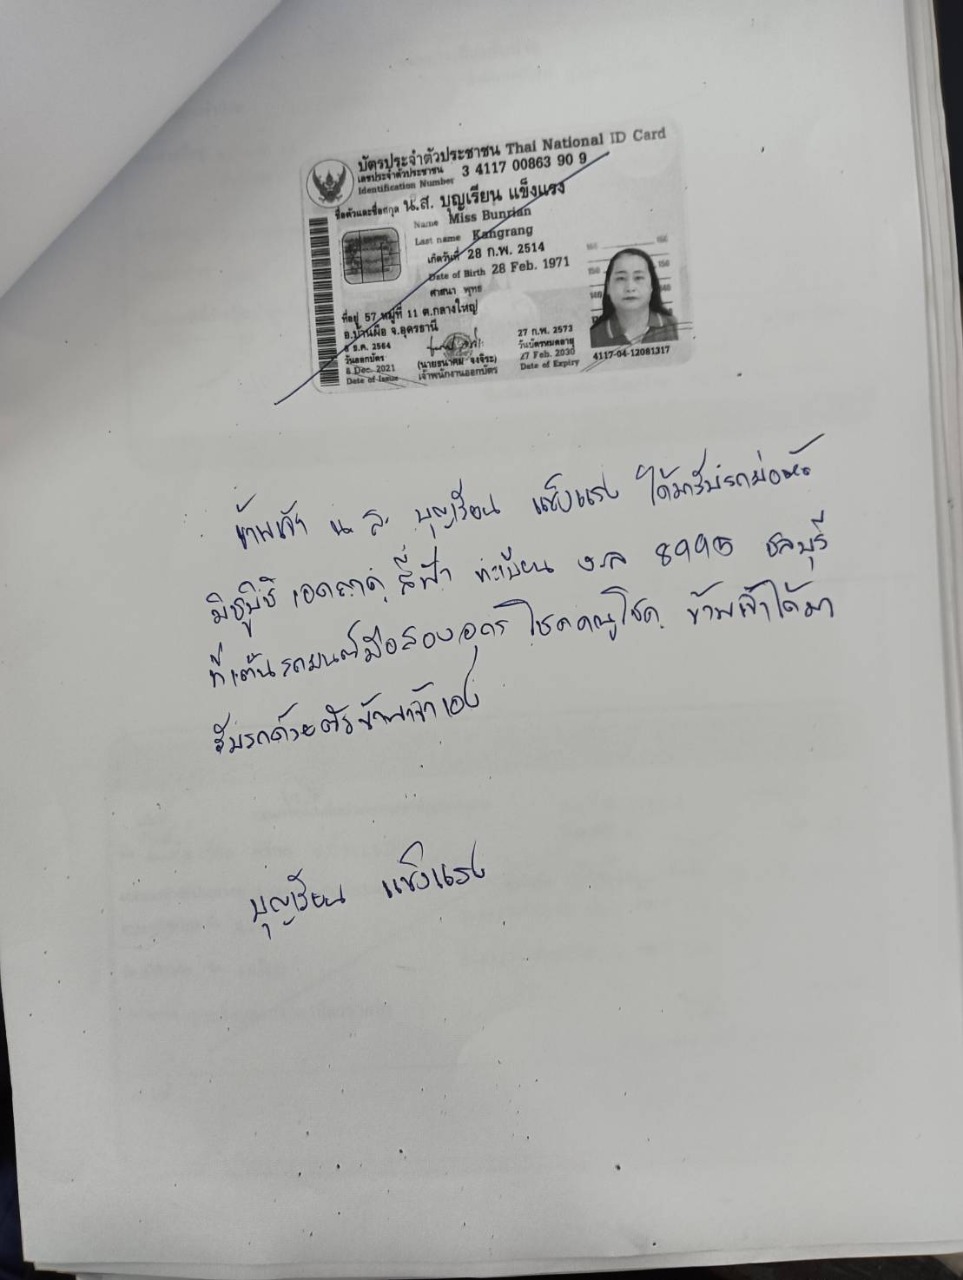 บัตรประจำตัวประชาชน Thai National ID Card
เลขประจำตัวประชาชน 3 4117 00863 90 9
Identification Number
ชื่อตัวและชื่อสกุล น.ส. บุญเรียน แข็งแรง
Name Miss Bunrian
Last name Kangrang
เกิดวันที่ 28 ก.พ. 2514
Date of Birth 28 Feb. 1971
ศาสนา พุทธ
ที่อยู่ 57 หมู่ที่ 11 ต.กลางใหญ่
อ.บ้านผือ จ.อุดรธานี
8 ธ.ค. 2564
วันออกบัตร
8 Dec. 2021
Date of Issue
เจ้าพนักงานออกบัตร
27 ก.พ. 2573
วันบัตรหมดอายุ
27 Feb. 2030
Date of Expiry
4117-04-12081317
ข้าพเจ้า น.ส. บุญเรียน แข็งแรง ได้มารับรถยี่ห้อ
มิซูบิชิ สีฟ้า ทะเบียน ชลบุรี
ที่เต้นรถยนต์มือสองอุดร ข้าพเจ้าได้มา
รับรถด้วยตัวข้าพเจ้าเอง
บุญเรียน แข็งแรง